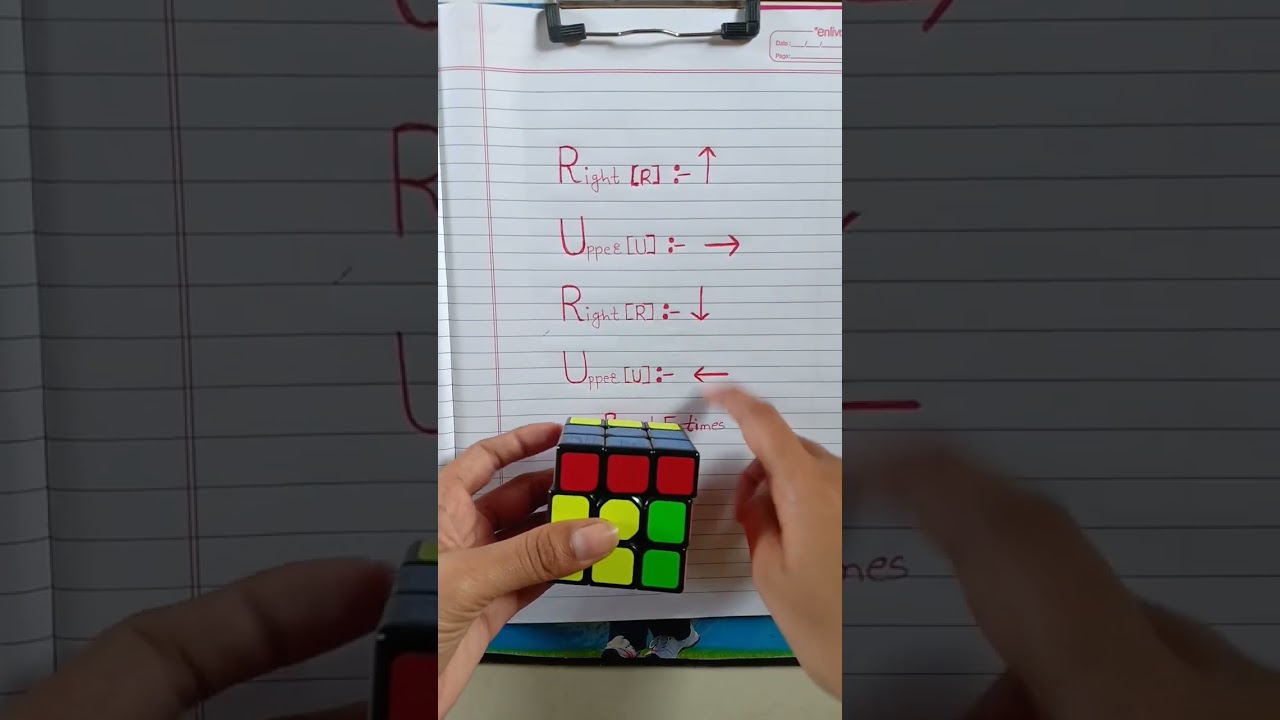 "enliv
Date: __/__/__
Page: ______
Right [R] :- ↑
Upper [U] :- →
Right [R] :- ↓
Upper [U] :- ←
5 times
mes